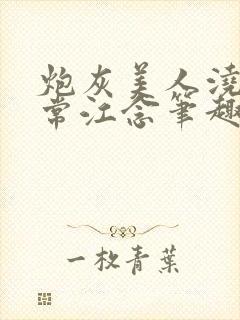 炮灰美人浇
常江念笔趣
一枚青葉